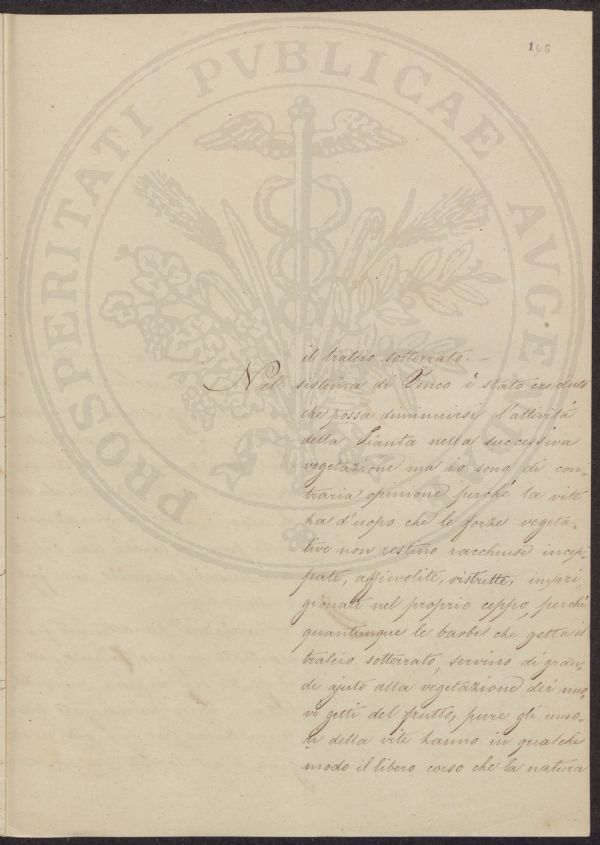 106
PROSPERITATI PVBLICAE AVGENDAE
il tralcio sotterrato. -
Nel sistema di Cinco è stato creduto
che possa diminuirsi l'attività
della Pianta nella successiva
vegetazione ma io sono di con-
traria opinione, perchè la vite
ha d'uopo che le forze vegeta-
tive non restino racchiuse incep-
pate, affievolite, ristrette, impri-
gionate nel proprio ceppo, perchè
quantunque le barbe che getta il
tralcio sotterrato, servino di gran-
de ajuto alla vegetazione dei nuo-
vi getti del frutto, pure gli umo-
ri della vite hanno in qualche
modo il libero corso che la natura